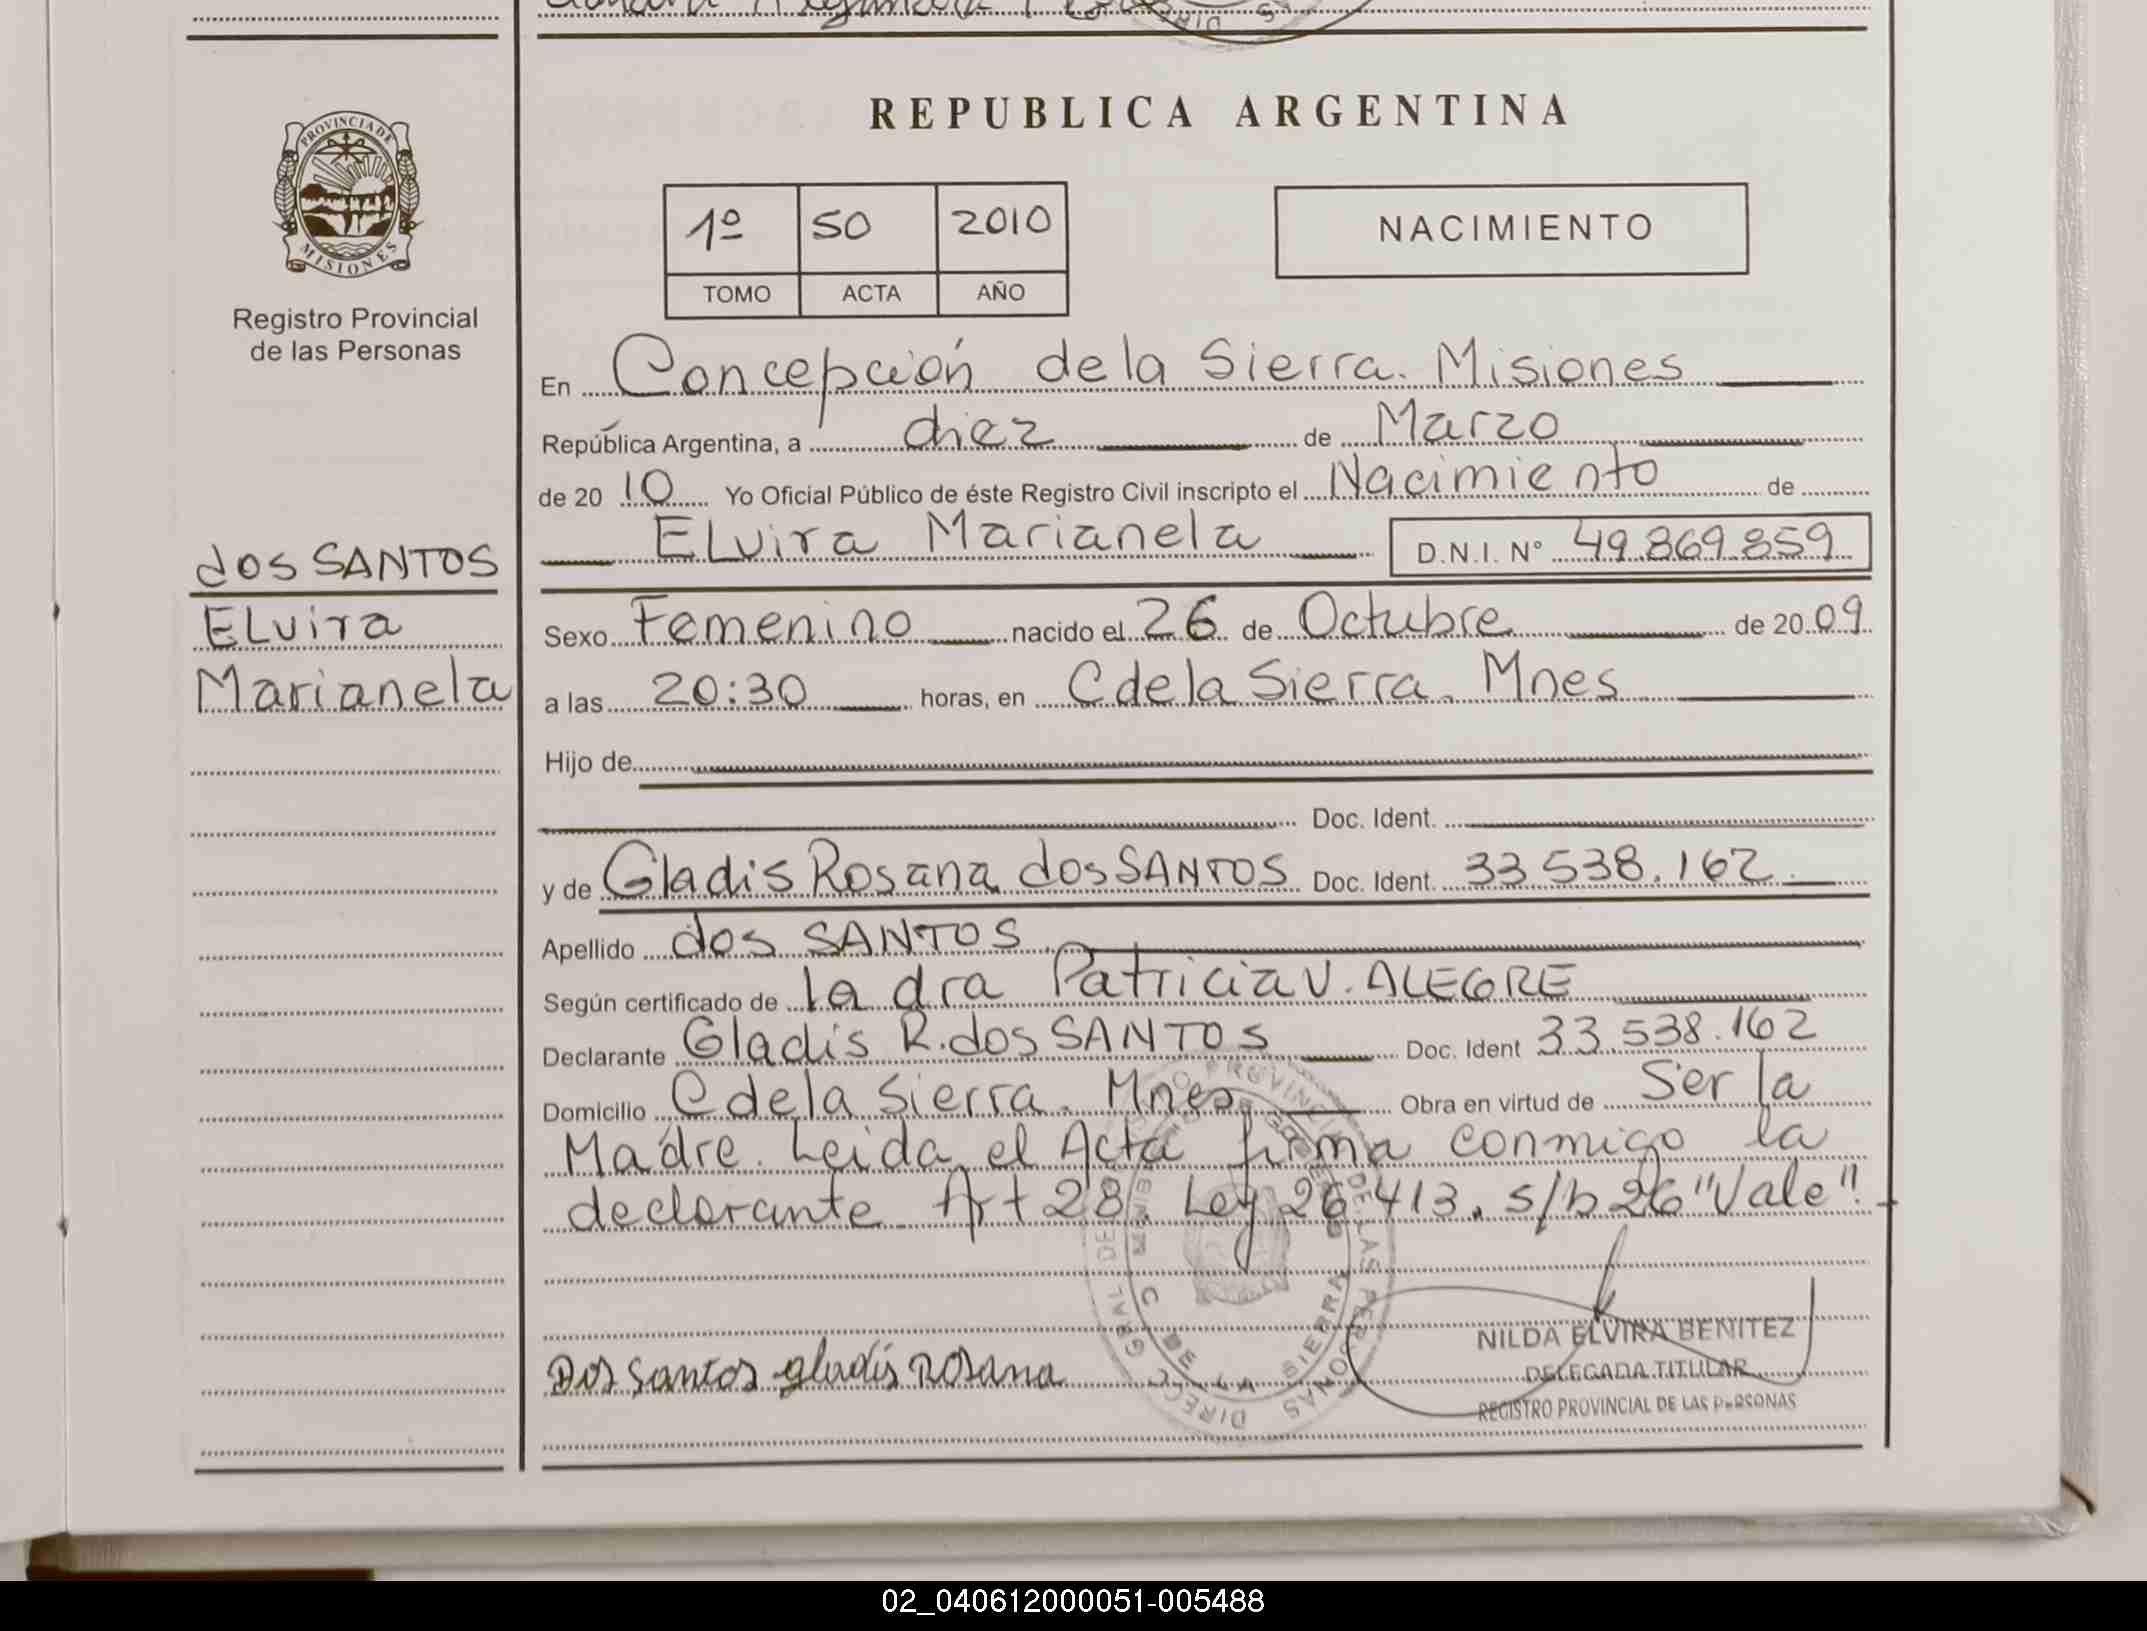 REPUBLICA ARGENTINA
PROVINCIA DE
MISIONES
Registro Provincial
de las Personas
1º 50 2010
TOMO ACTA AÑO
NACIMIENTO
En Concepción de la Sierra. Misiones
República Argentina, a diez de Marzo
de 20 10 Yo Oficial Público de éste Registro Civil inscripto el Nacimiento de
Elvira Marianela D.N.I. N° 49.869.859
dos SANTOS
Elvira
Marianela
Sexo Femenino nacido el 26 de Octubre de 20 09
a las 20:30 horas, en C de la Sierra. Mnes
Hijo de
Doc. Ident.
y de Gladis Rosana dos SANTOS Doc. Ident. 33.538.162
Apellido dos SANTOS
Según certificado de la dra Patricia V. ALEGRE
Declarante Gladis R. dos SANTOS Doc. Ident 33.538.162
Domicilio C de la Sierra. Mnes Obra en virtud de Ser la
Madre. Leida el Acta firma conmigo la
declarante Art 28. Ley 26.413. s/b 26 "Vale".
Dos Santos gladis Rosana
NILDA ELVIRA BENITEZ
DELEGADA TITULAR
REGISTRO PROVINCIAL DE LAS PERSONAS
02_040612000051-005488